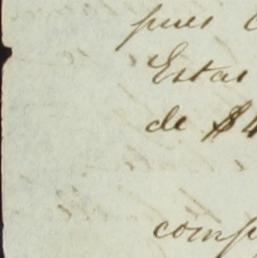 pues
Estas
de $4
comp